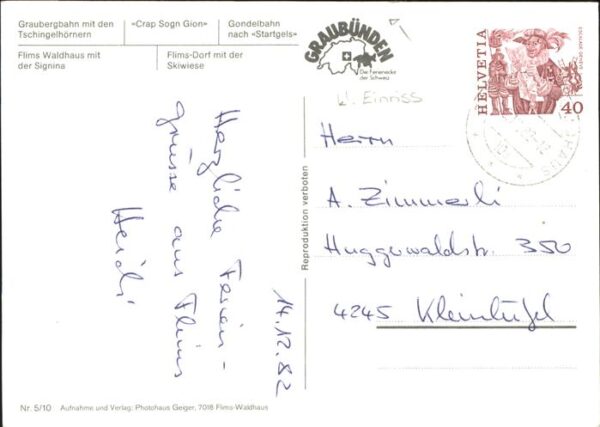 Graubergbahn mit den
Tschingelhörnern
«Crap Sogn Gion»
Gondelbahn
nach «Startgels»
Flims Waldhaus mit
der Signina
Flims-Dorf mit der
Skiwiese
GRAUBÜNDEN
Die Ferienecke
der Schweiz
HELVETIA
ESCALADE GENEVE
40
kl. Einriss
Herzliche Ferien-
grüsse aus Flims
Heidi
14.12.82
Reproduktion verboten
Herrn
A. Zimmerli
Huggerwaldstr. 350
4245 Kleinlützel
Nr. 5/10 Aufnahme und Verlag: Photohaus Geiger, 7018 Flims-Waldhaus